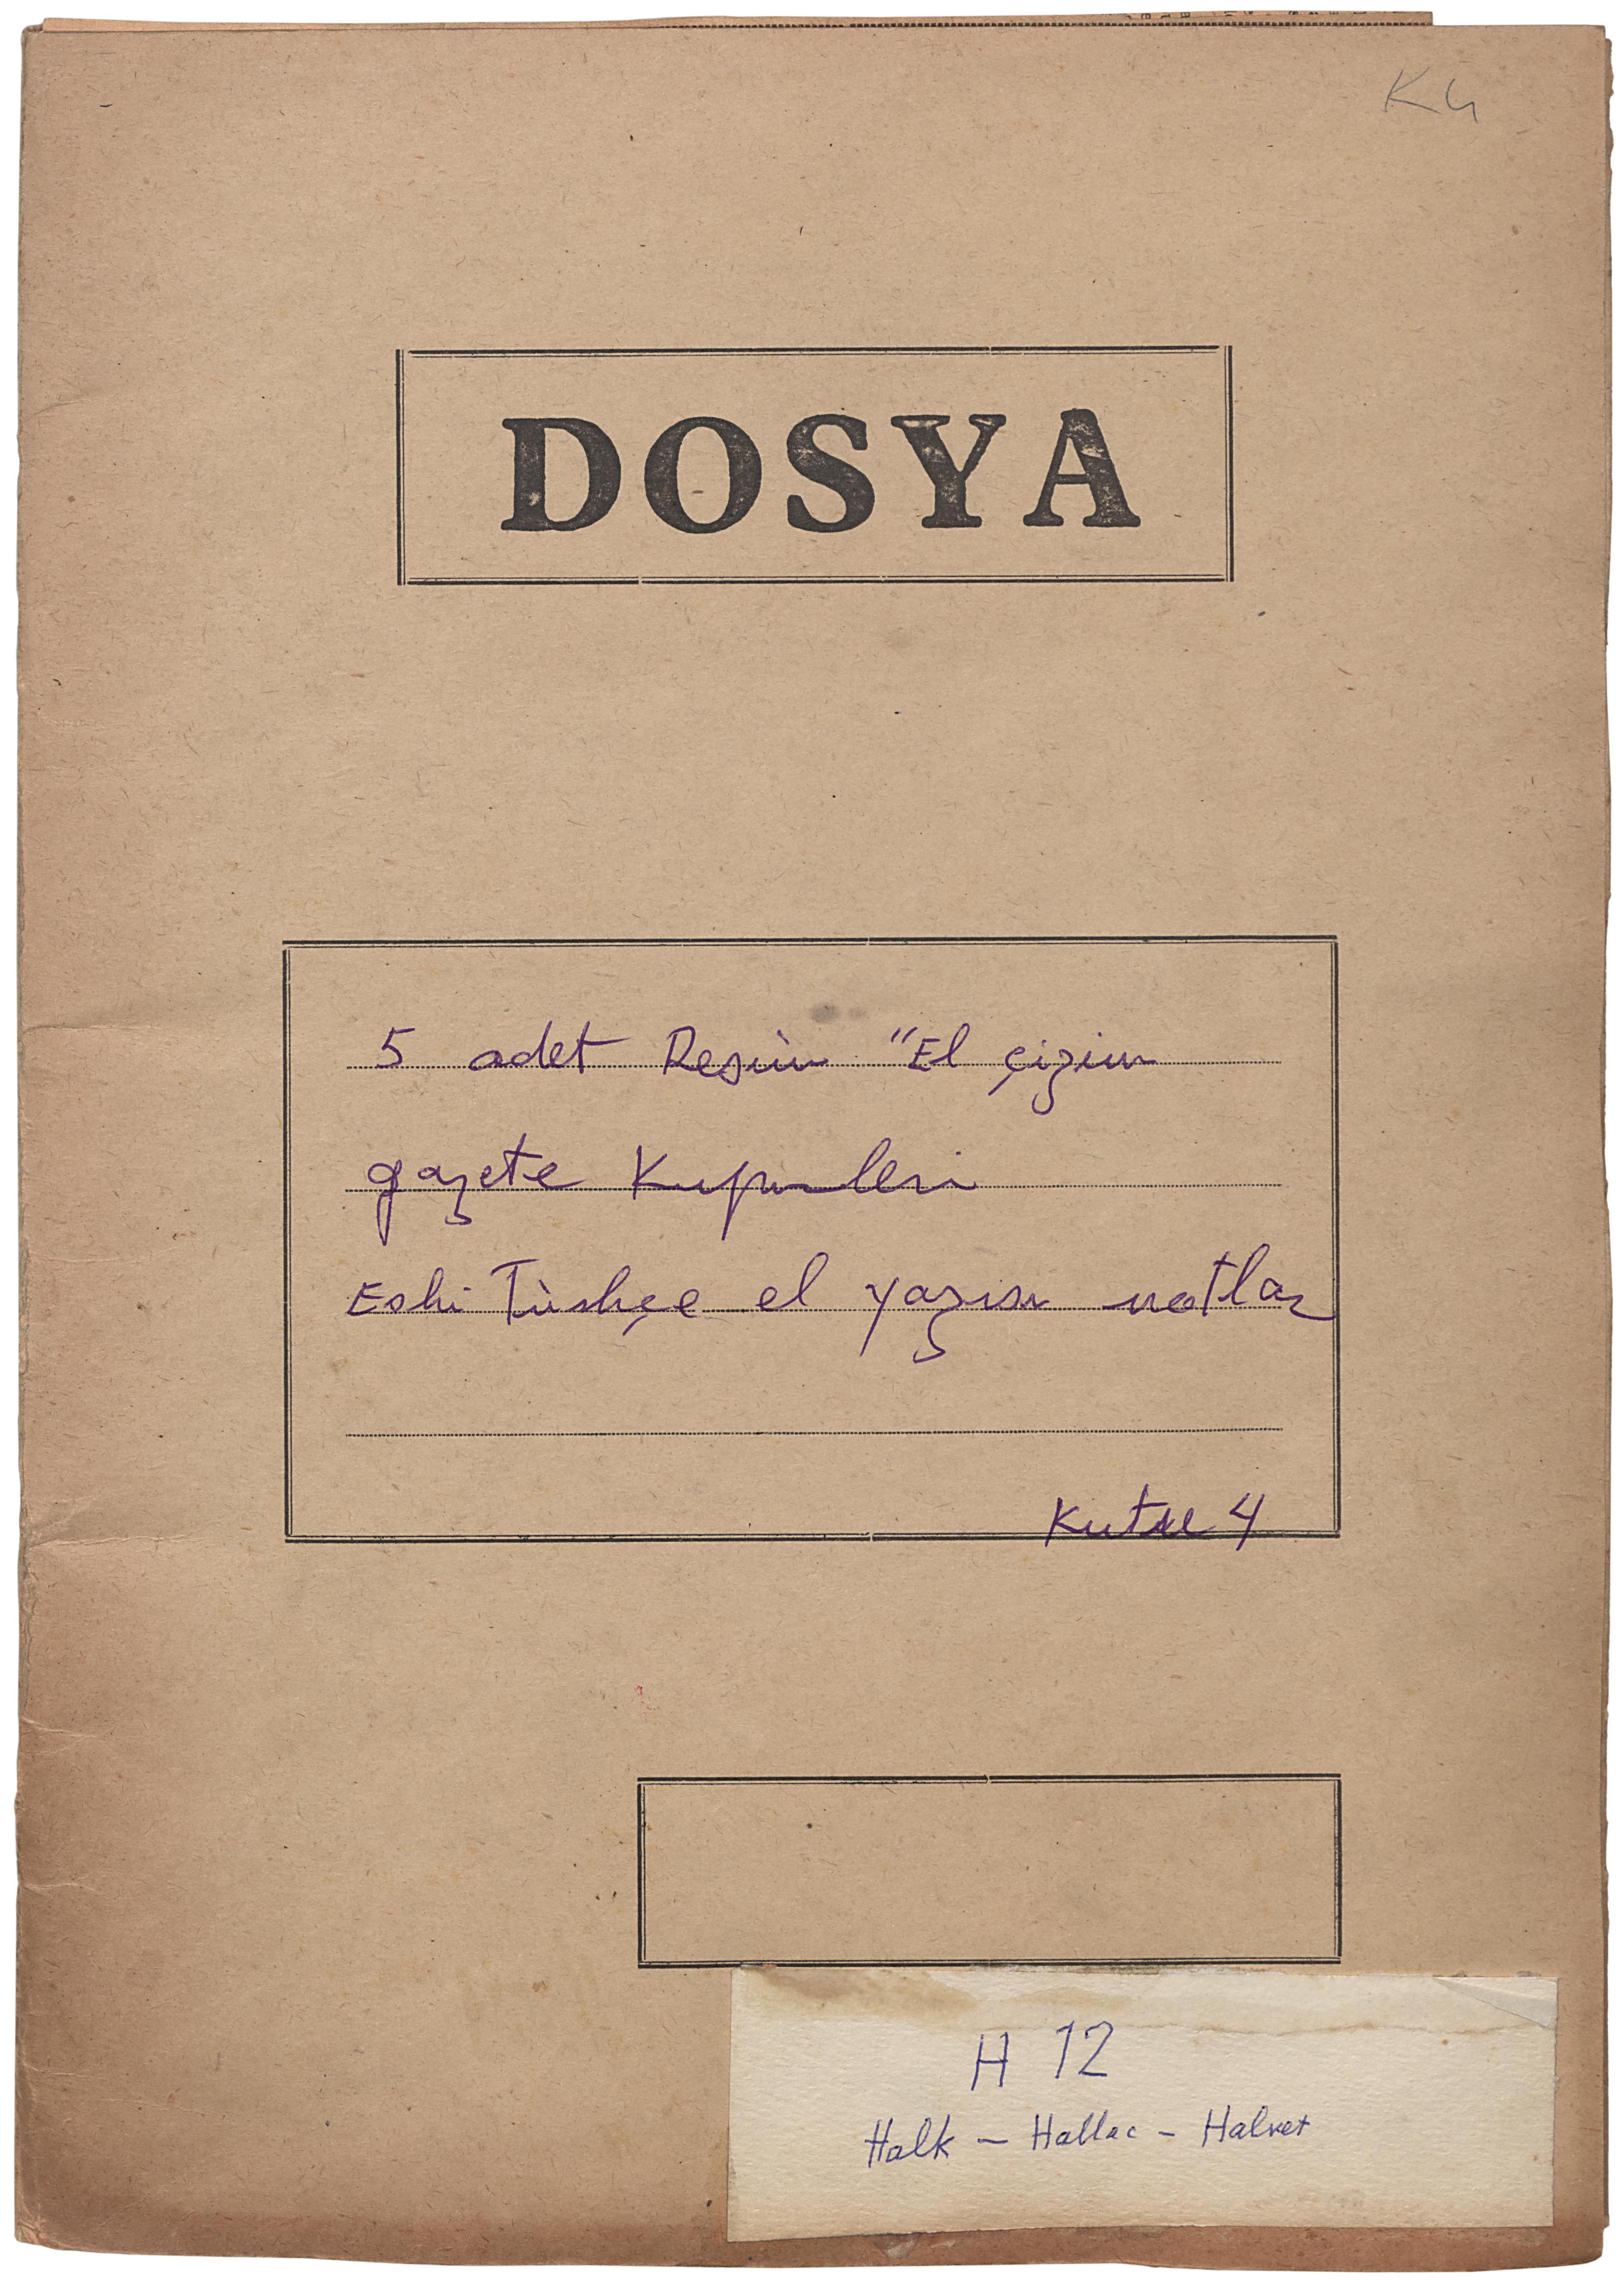 K4
DOSYA
5 adet Resim "El çizim
gazete Kupürleri
Eski Türkçe el yazısı notlar
Kutu 4
H 12
Halk - Hallac - Halvet